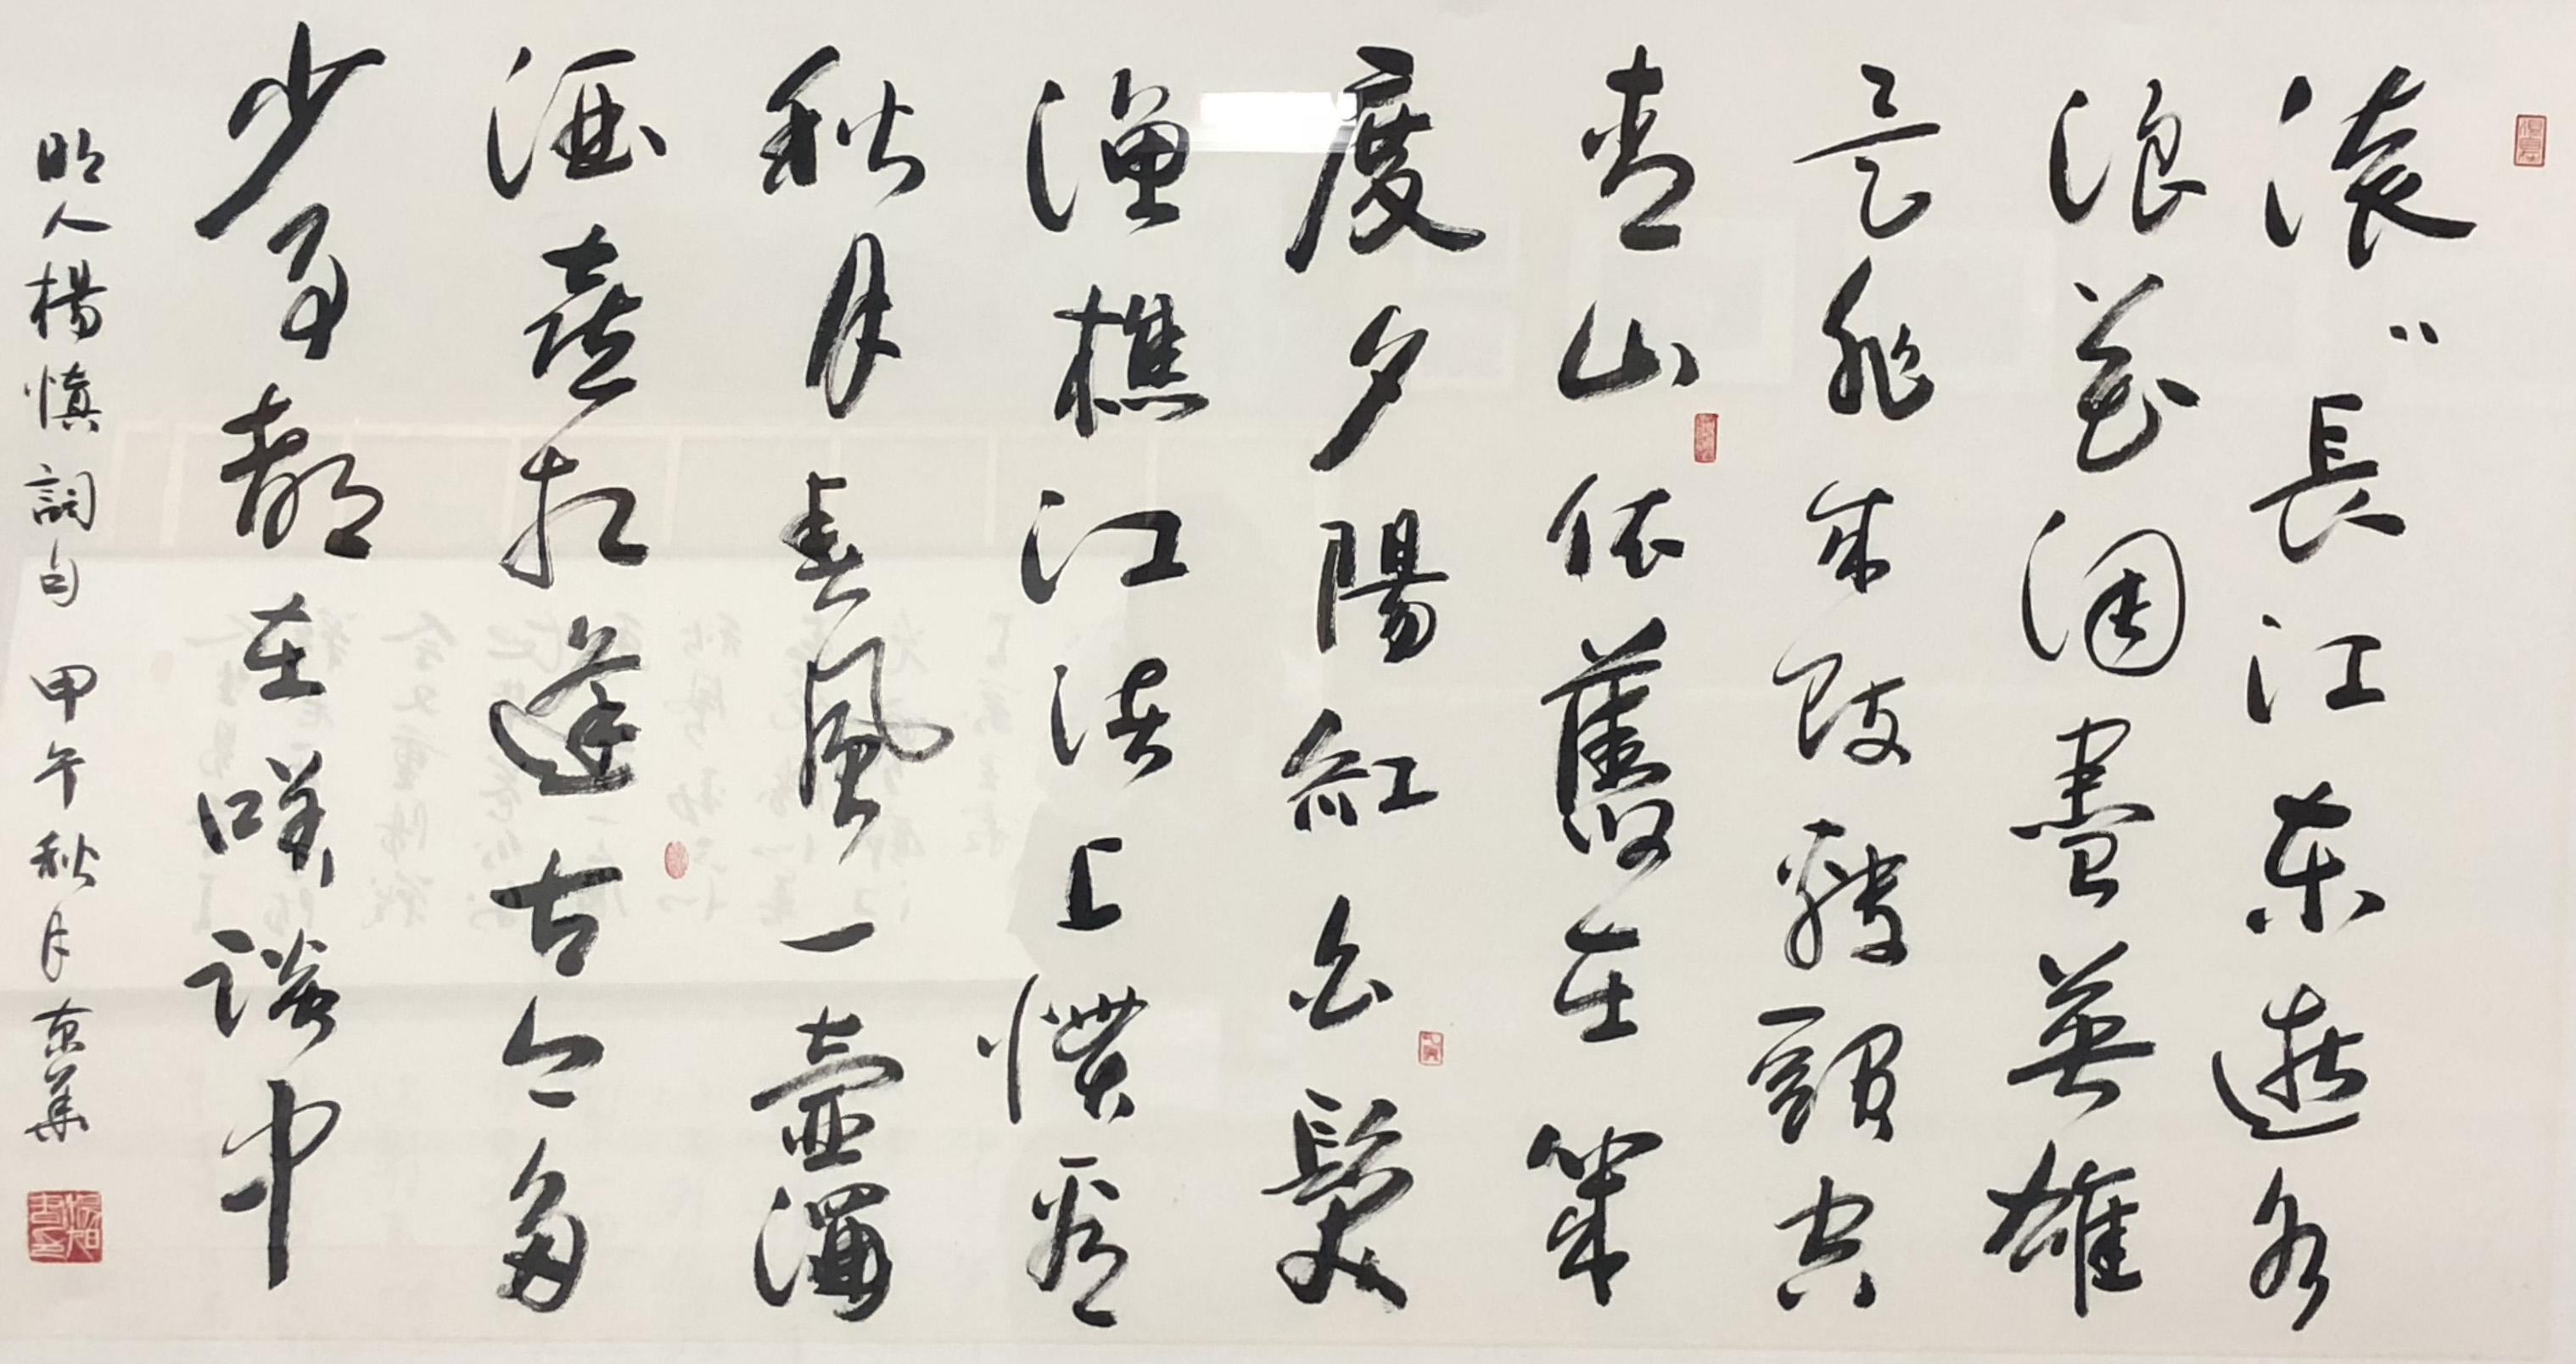 滚〻長江東逝水
浪花淘盡英雄
是非成敗轉頭空
青山依舊在幾
度夕陽紅白髮
漁樵江渚上慣看
秋月春風一壺濁
酒喜相逢古今多
少事都在咲談中
明人楊慎詞句 甲午秋月京華